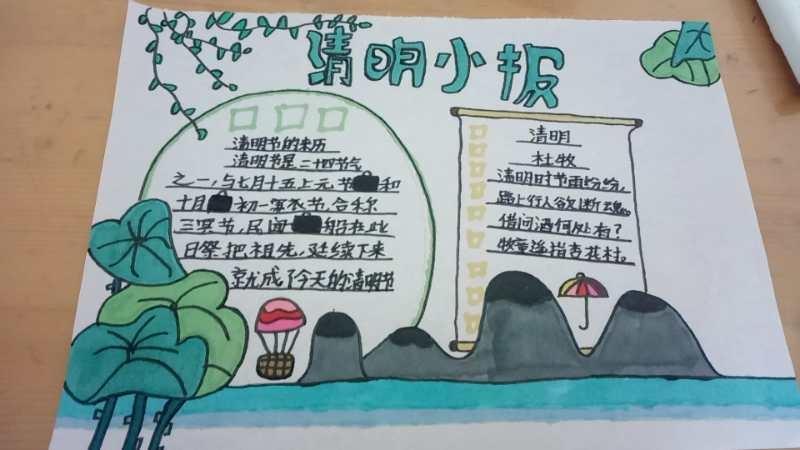 清明小报
清明节的来历
清明节是二十四节气
之一，与七月十五上元，节和
十月初一寒衣节，合称
三冥节，民间船在此
日祭把祖先，延续下来
就成了今天的清明节
清明
杜牧
清明时节雨纷纷，
路上行人欲断魂。
借问酒何处有？
牧童遥指杏花村。